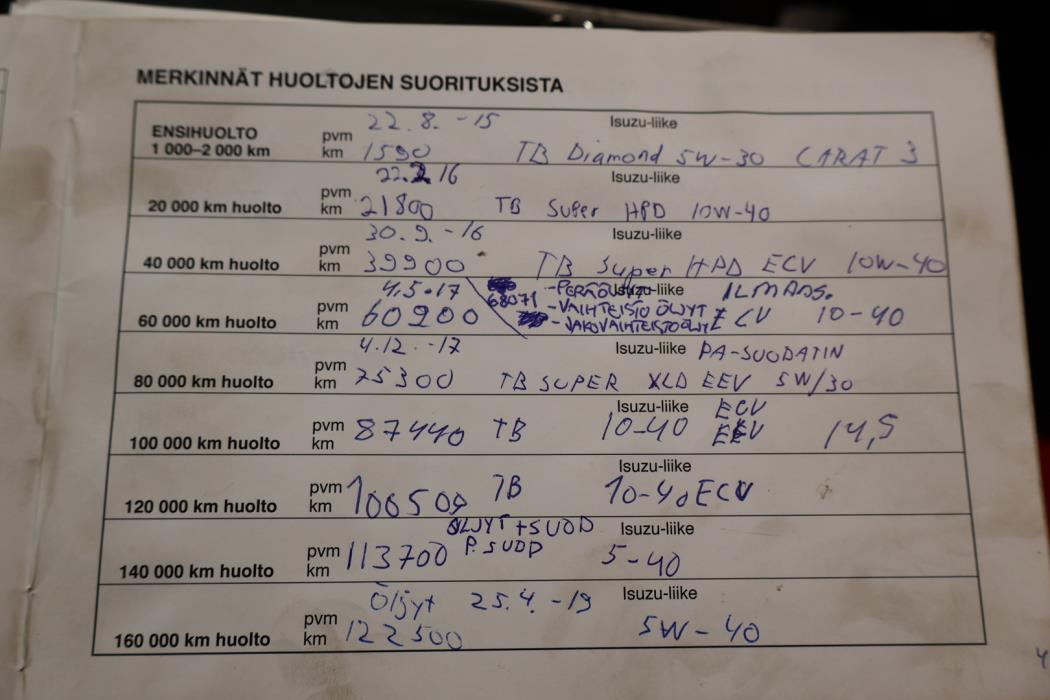 MERKINNÄT HUOLTOJEN SUORITUKSISTA
ENSIHUOLTO pvm 22.8.-15 Isuzu-liike
1 000–2 000 km km 1590 TB Diamond 5W-30 CARAT 3
pvm 22.2.16 Isuzu-liike
20 000 km huolto km 21800 TB Super HPD 10W-40
pvm 30.9.-16 Isuzu-liike
40 000 km huolto km 39900 TB Super HPD ECV 10W-40
pvm 4.5.17 -PERÄÖLJYT Isuzu-liike ILMANS.
68071 -VAIHTEISTO ÖLJYT
60 000 km huolto km 60200 -JAKOVAIHTEISTOÖLJY ECV 10-40
pvm 4.12.-17 Isuzu-liike PA-SUODATIN
80 000 km huolto km 75300 TB SUPER XLD EEV 5W/30
Isuzu-liike ECV
100 000 km huolto pvm km 87440 TB 10-40 14,5
Isuzu-liike
120 000 km huolto pvm km 100500 TB 10-40 ECV
ÖLJYT + SUOD Isuzu-liike
P. SUOD
140 000 km huolto pvm km 113700 5-40
Öljyt 25.4.-19 Isuzu-liike
160 000 km huolto pvm km 122500 5W-40